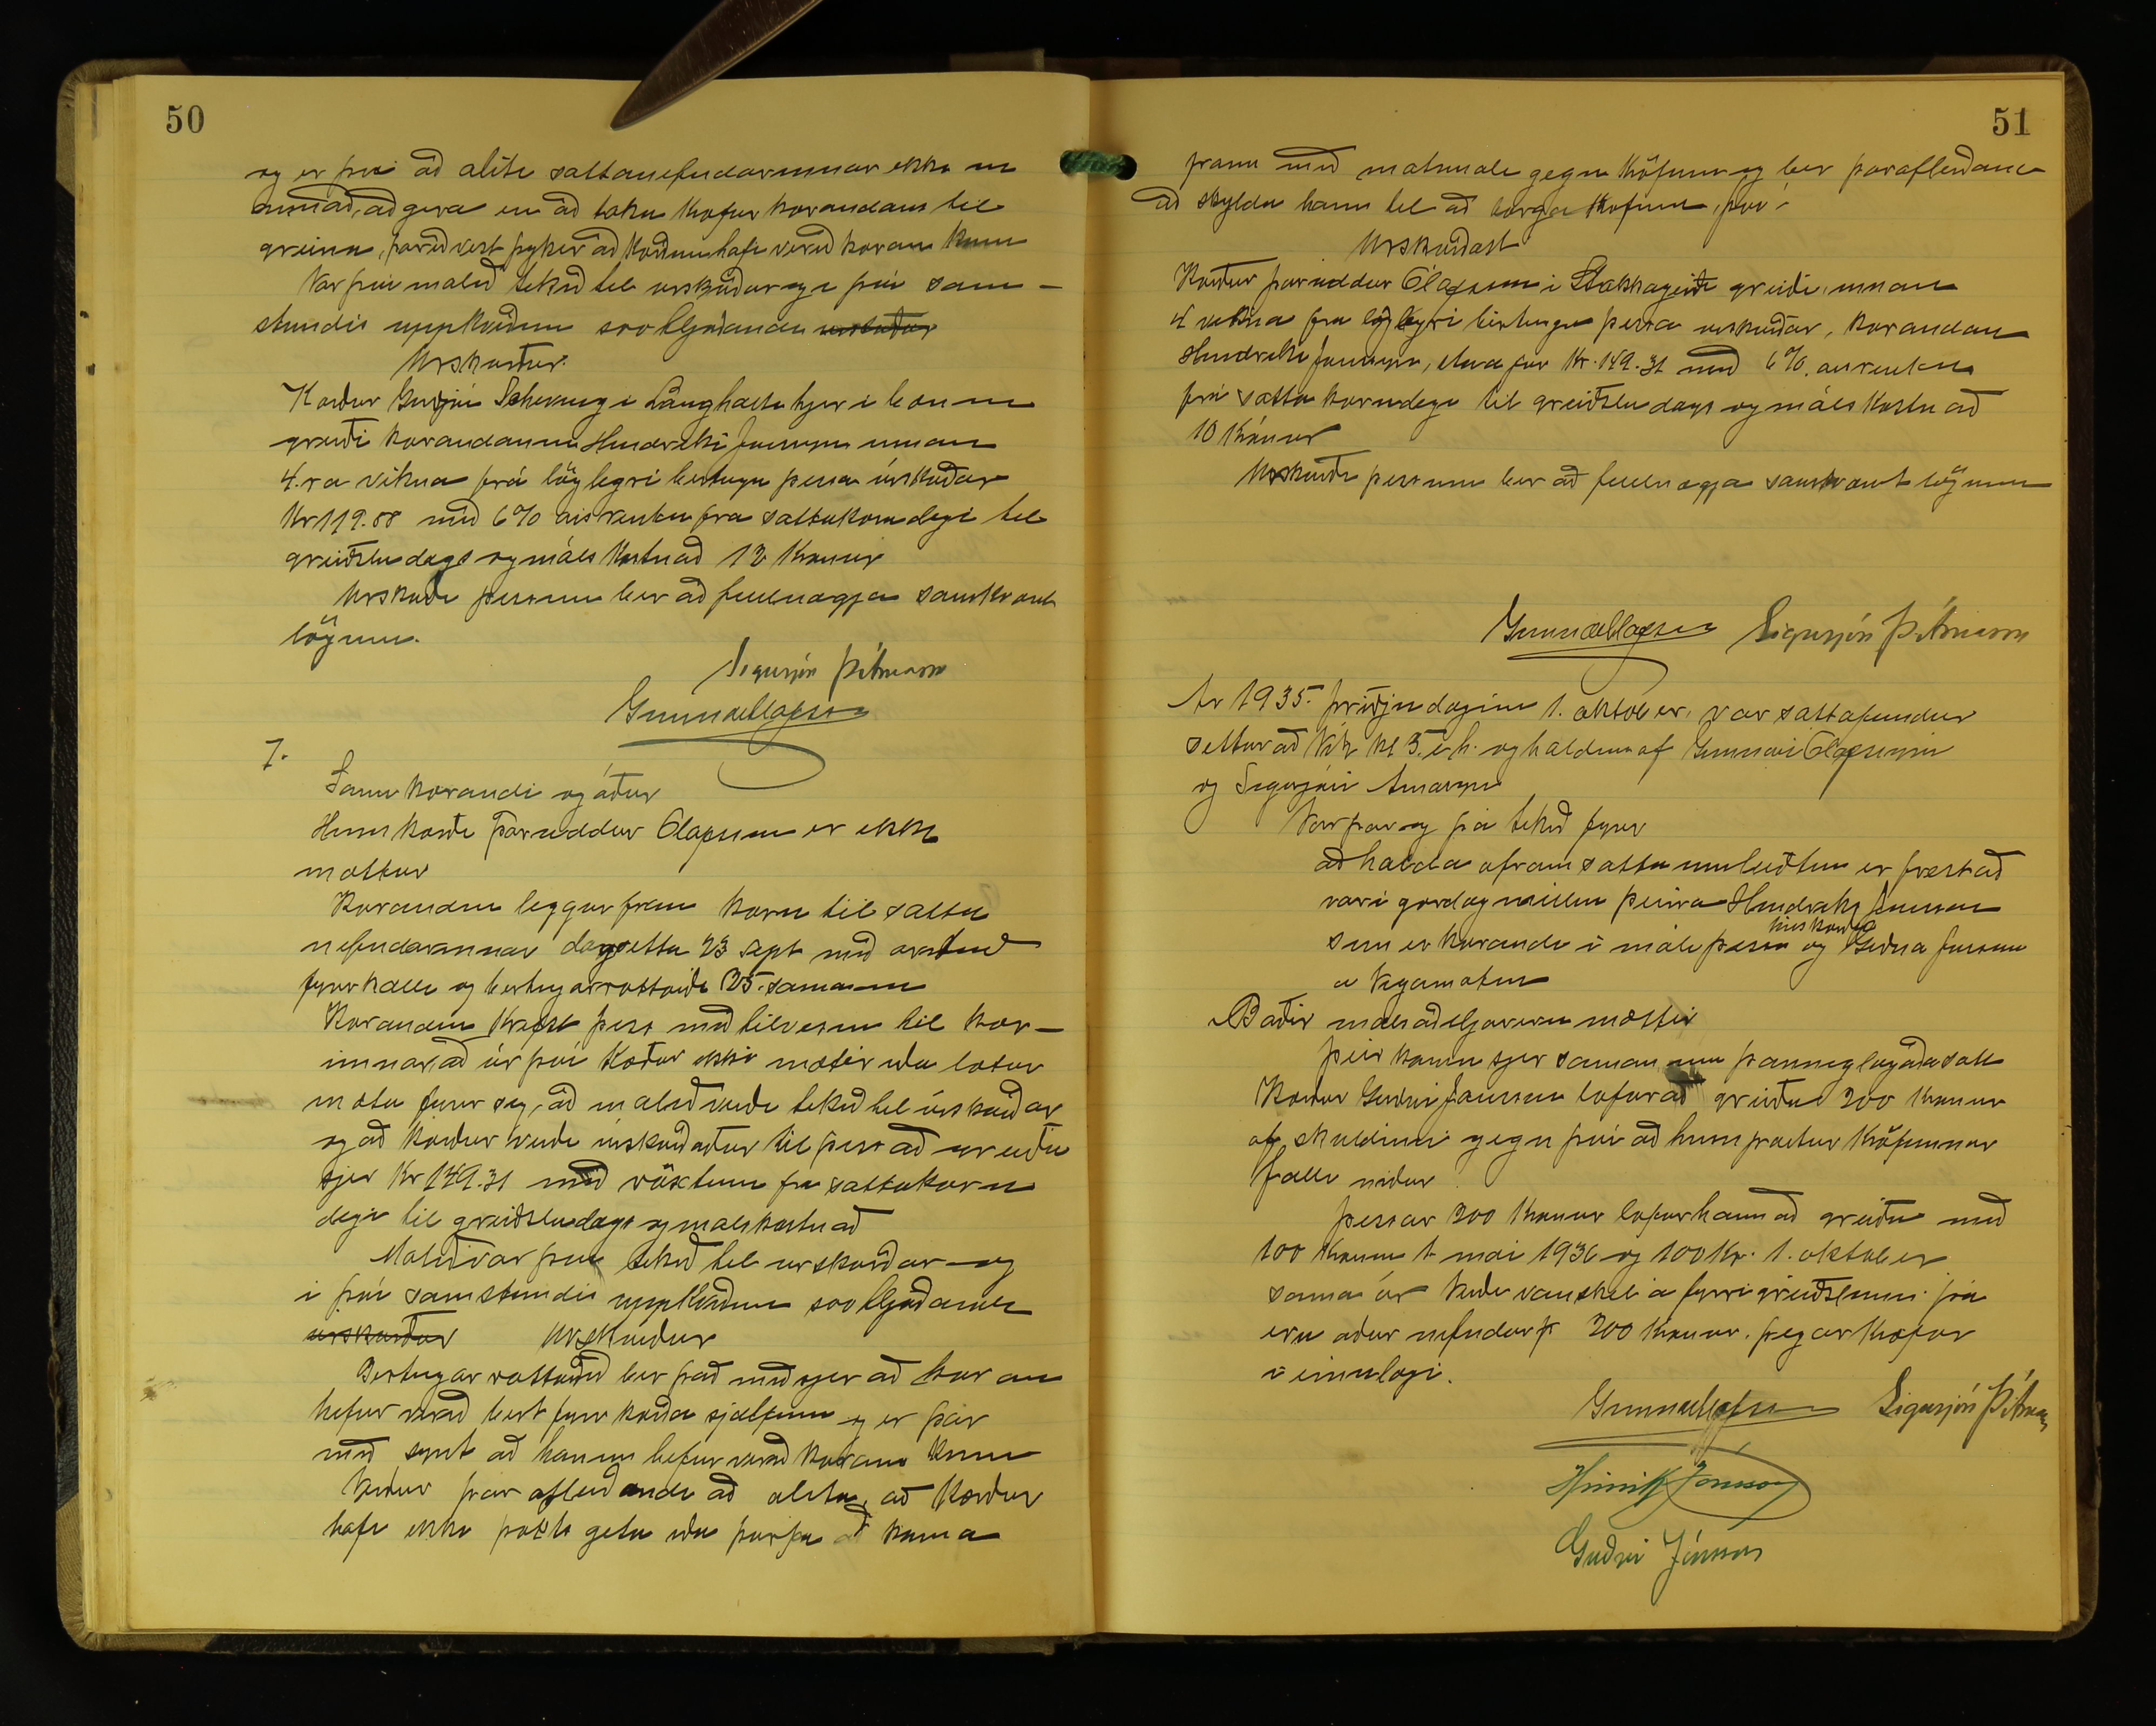 50
og er því að álíta sáttanefndarinnar ekki um
annað, að gera en að taka kröfur kærandans til
greina, þarið vert þykir að kærðum hafi verið kæran kunn
Var því málið tekið til úrskurðar og í því sam-
stundis uppkveðinn svohljóðandi úrskurður
Úrskurður.
Kærður Guðjón Scheving í Langholti hjer í bænum
greiði kærandanum Hendreki Jónssyni innan
4.ra vikna frá löglegri birtingu þessa úrskurðar
Kr 119.88 með 6% ársvöxtum frá sáttakærudegi til
greiðsludags og málskostnað 12 Krónur
Úrskurði þessum ber að fullnægja samkvæmt
lögum.
Sigurjón Þ Árnason
Gunnar Ólafsson
7.
Sami kærandi og áður
Hinn kærði Þoruddur Olafsson er ekki
mættur
Kærandinn leggur fram kæru til sátta
nefndarinnar dagsetta 23 sept með áritað
fyrirkalli og birtingarvottorði 25. sama mán
Kærandinn krefst þess með tilvísun til kær-
unnar, að úr því kærður ekki mætir eða lætur
mæta fyrir sig, að málið verði tekið til úrskurðar
og að kærður verði úrskurðaður til þess að greiða
sjer Kr 149.31 með vöxtum frá sáttakæru
degi til greiðsludags og málskostnað
Málið var því tekið til úrskurðar og
í því samstundis uppkveðinn svohljóðandi
úrskurður Úrskurður
Birtingarvottorðið ber það með sjer að kæran
hefur verið birt fyrir kærða sjálfum og er þar
með synt að honum hefur verið kæran kunn
Verður þar afleiðandi að álíta, að kærður
hafi ekki þókst geta eða þurfa að koma
51
fram með mótmæli gegn kröfunni og ber þarafleiðandi
að skylda hann til að borga kröfuna, því
Úrskurðast
Kærður Þoruddur Ólafsson í Stakkagerði greiði, innan
4 vikna frá löglegri birtingu þessa úrskurðar, kærandanum
Hendreki Jónssyni, skuld Kr. 149.31 með 6% ársvöxtum
frá sáttakærudegi til greiðsludags og máls kostnað
10 Krónur
Úrskurði þessum ber að fullnægja samkvæmt lögum
Gunnar Ólafsson Sigurjón Þ. Árnason
Ár 1935. þriðjudaginn 1. október, var sáttafundur
settur að Vík kl 5. e.h. og haldinn af Gunnari Ólafssyni
og Sigurjóni Árnasyni
Var þar og þá tekið fyrir
að halda áfram sáttaumleitun er frestað
var í gærdag millum þeirra Hendreks Jónssonar
sem er kærandi í máli þessu og hins kærða Guðna Jónssonar
á Vegamótum
Báðir málsaðiljarnir mættir
Þeir koma sjer saman um þannig lagaða sátt
Kærður Guðni Jónsson lofar að greiða 200 Krónur
af skuldinni gegn því að hinn partur kröfunnar
falli niður
Þessar 200 Krónur lofar hann að greiða með
100 Krónum 1. mai 1936 og 100 Kr. 1. október
sama ár Verði vanskil á fyrri greiðslunni þá
eru áður nefndar 200 Krónur. þegar kræfar
í einu lagi.
Gunnar Ólafsson Sigurjón Þ. Árnason
Hinrik Jónsson
Guðni Jónsson